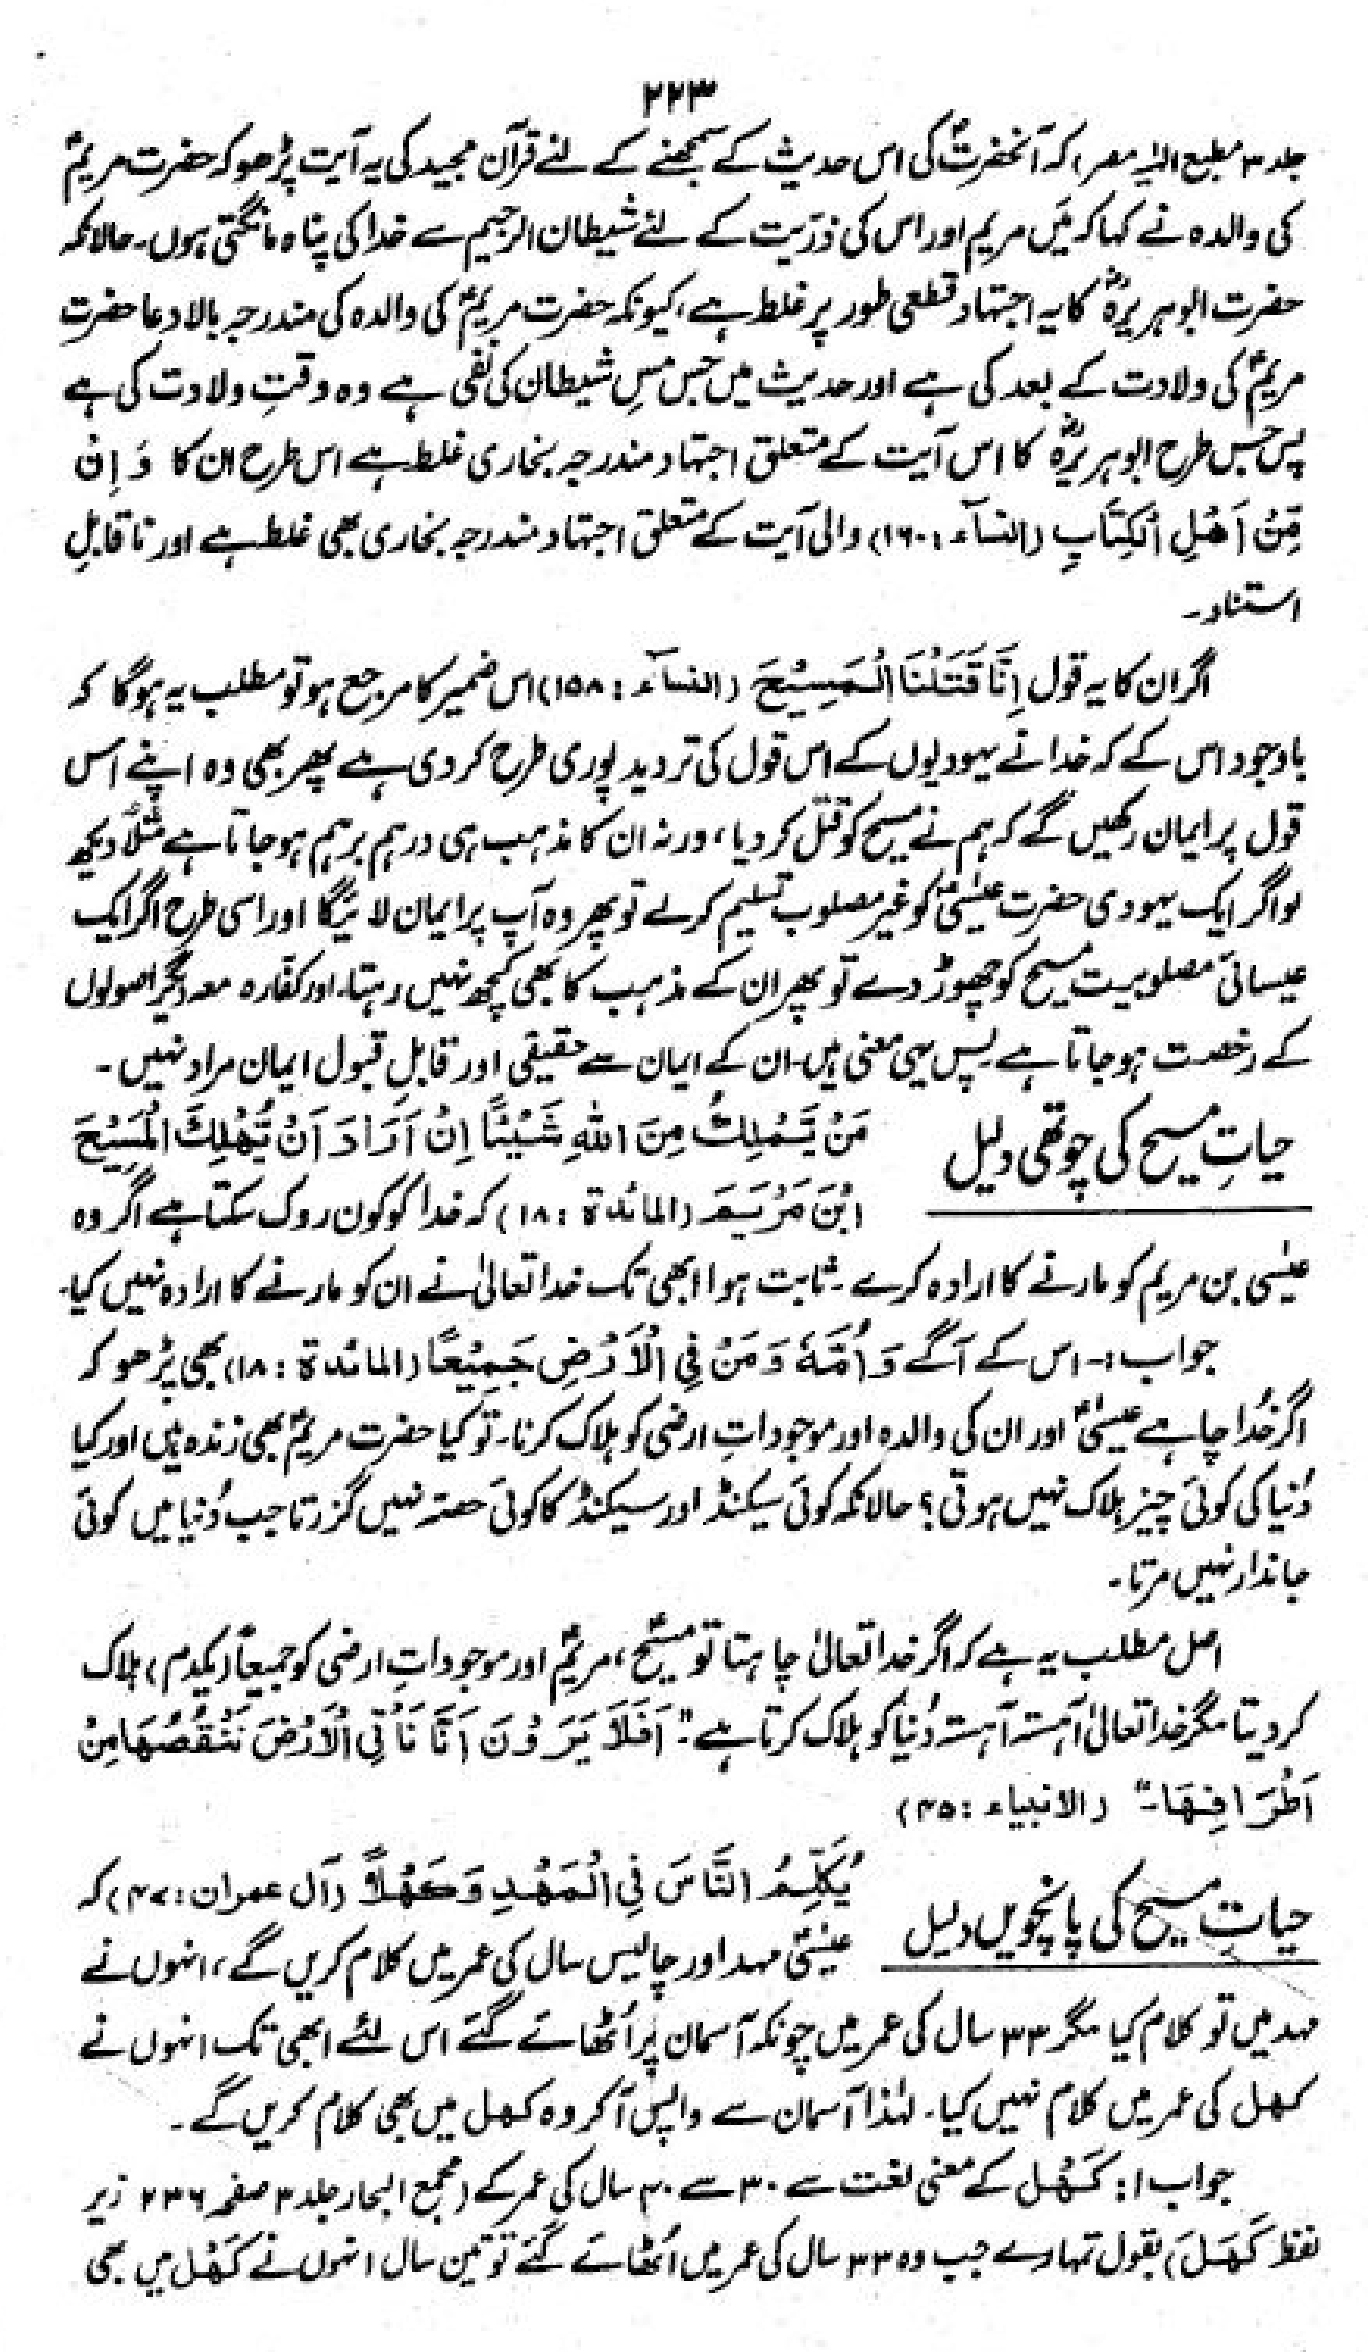 ۲۲۳
جلد ۳ مطبع الہٰیہ مصر) کہ آنحضرتؐ کی اس حدیث کے سمجھنے کے لئے قرآن مجید کی یہ آیت پڑھو کہ حضرت مریمؑ
کی والدہ نے کہا کہ مَیں مریم اور اس کی ذرّیت کے لئے شیطان الرجیم سے خدا کی پناہ مانگتی ہوں۔ حالانکہ
حضرت ابوہریرہؓ کا یہ اجتہاد قطعی طور پر غلط ہے، کیونکہ حضرت مریمؑ کی والدہ کی مندرجہ بالا دعا حضرت
مریمؑ کی ولادت کے بعد کی ہے اور حدیث میں جس مسِ شیطان کی نفی ہے وہ وقتِ ولادت کی ہے
پس جس طرح ابوہریرہؓ کا اس آیت کے متعلق اجتہاد مندرجہ بخاری غلط ہے اس طرح ان کا وَ اِنْ
مِّنْ اَهْلِ الْكِتَابِ (النسآء : ۱۶۰) والی آیت کے متعلق اجتہاد مندرجہ بخاری بھی غلط ہے اور ناقابلِ
استناد۔
اگر ان کا یہ قول اِنَّا قَتَلْنَا الْمَسِيْحَ (النسآء : ۱۵۸) اس ضمیر کا مرجع ہو تو مطلب یہ ہوگا کہ
باوجود اس کے کہ خدا نے یہودیوں کے اس قول کی تردید پوری طرح کر دی ہے پھر بھی وہ اپنے اس
قول پر ایمان رکھیں گے کہ ہم نے مسیح کو قتل کر دیا، ورنہ ان کا مذہب ہی درہم برہم ہو جاتا ہے مثلاً دیکھ
لو اگر ایک یہودی حضرت عیسٰیؑ کو غیر مصلوب تسلیم کر لے تو پھر وہ آپ پر ایمان لائیگا اور اسی طرح اگر ایک
عیسائی مصلوبیت مسیح کو چھوڑ دے تو پھر ان کے مذہب کا بھی کچھ نہیں رہتا، اور کفّارہ معہ دیگر اصولوں
کے رخصت ہو جاتا ہے۔ پس یہی معنی ہیں۔ ان کے ایمان سے حقیقی اور قابلِ قبول ایمان مراد نہیں۔
حیاتِ مسیح کی چوتھی دلیل
مَنْ يَّمْلِكُ مِنَ اللّٰهِ شَيْئًا اِنْ اَرَادَ اَنْ يُّهْلِكَ الْمَسِيْحَ
ابْنَ مَرْيَمَ (المائدة : ۱۸) کہ خدا کو کون روک سکتا ہے اگر وہ
عیسٰی بن مریم کو مارنے کا ارادہ کرے۔ ثابت ہوا ابھی تک خدا تعالیٰ نے ان کو مارنے کا ارادہ نہیں کیا۔
جواب:۔ اس کے آگے وَ اُمَّهٗ وَ مَنْ فِی الْاَرْضِ جَمِيْعًا (المائدة : ۱۸) بھی پڑھو کہ
اگر خُدا چاہے عیسٰیؑ اور ان کی والدہ اور موجوداتِ ارضی کو ہلاک کرنا۔ تو کیا حضرت مریمؑ بھی زندہ ہیں اور کیا
دُنیا کی کوئی چیز ہلاک نہیں ہوتی؟ حالانکہ کوئی سیکنڈ اور سیکنڈ کا کوئی حصہ نہیں گزرتا جب دُنیا میں کوئی
جاندار نہیں مرتا۔
اصل مطلب یہ ہے کہ اگر خدا تعالیٰ چاہتا تو مسیحؑ، مریمؑ اور موجوداتِ ارضی کو جمیعاً (یکدم) ہلاک
کر دیتا مگر خدا تعالیٰ آہستہ آہستہ دُنیا کو ہلاک کرتا ہے۔" اَفَلَا يَرَوْنَ اَنَّا نَاْتِی الْاَرْضَ نَنْقُصُهَا مِنْ
اَطْرَافِهَا۔" (الانبیاء : ۴۵)
حیاتِ مسیح کی پانچویں دلیل
يُكَلِّمُ النَّاسَ فِی الْمَهْدِ وَ كَهْلًا (اٰل عمران : ۴۷) کہ
عیسٰیؑ مہد اور چالیس سال کی عمر میں کلام کریں گے، انہوں نے
مہد میں تو کلام کیا مگر ۳۳ سال کی عمر میں چونکہ آسمان پر اُٹھائے گئے اس لئے ابھی تک انہوں نے
کھل کی عمر میں کلام نہیں کیا۔ لہٰذا آسمان سے واپس آ کر وہ کھل میں بھی کلام کریں گے۔
جواب ا: كَهْل کے معنی لغت سے ۳۰ سے ۴۰ سال کی عمر کے (مجمع البحار جلد ۳ صفحہ ۲۳۶ زیر
لفظ كَهَلَ) بقول تمہارے جب وہ ۳۳ سال کی عمر میں اُٹھائے گئے تو تین سال انہوں نے كَهْل میں بھی